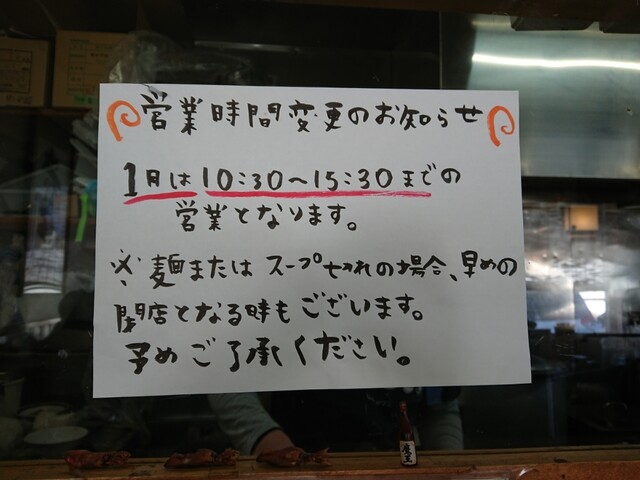 営業時間変更のお知らせ
1月は10:30～15:30までの
営業となります。
※麺またはスープ切れの場合、早めの
閉店となる時もございます。
予めご了承ください。